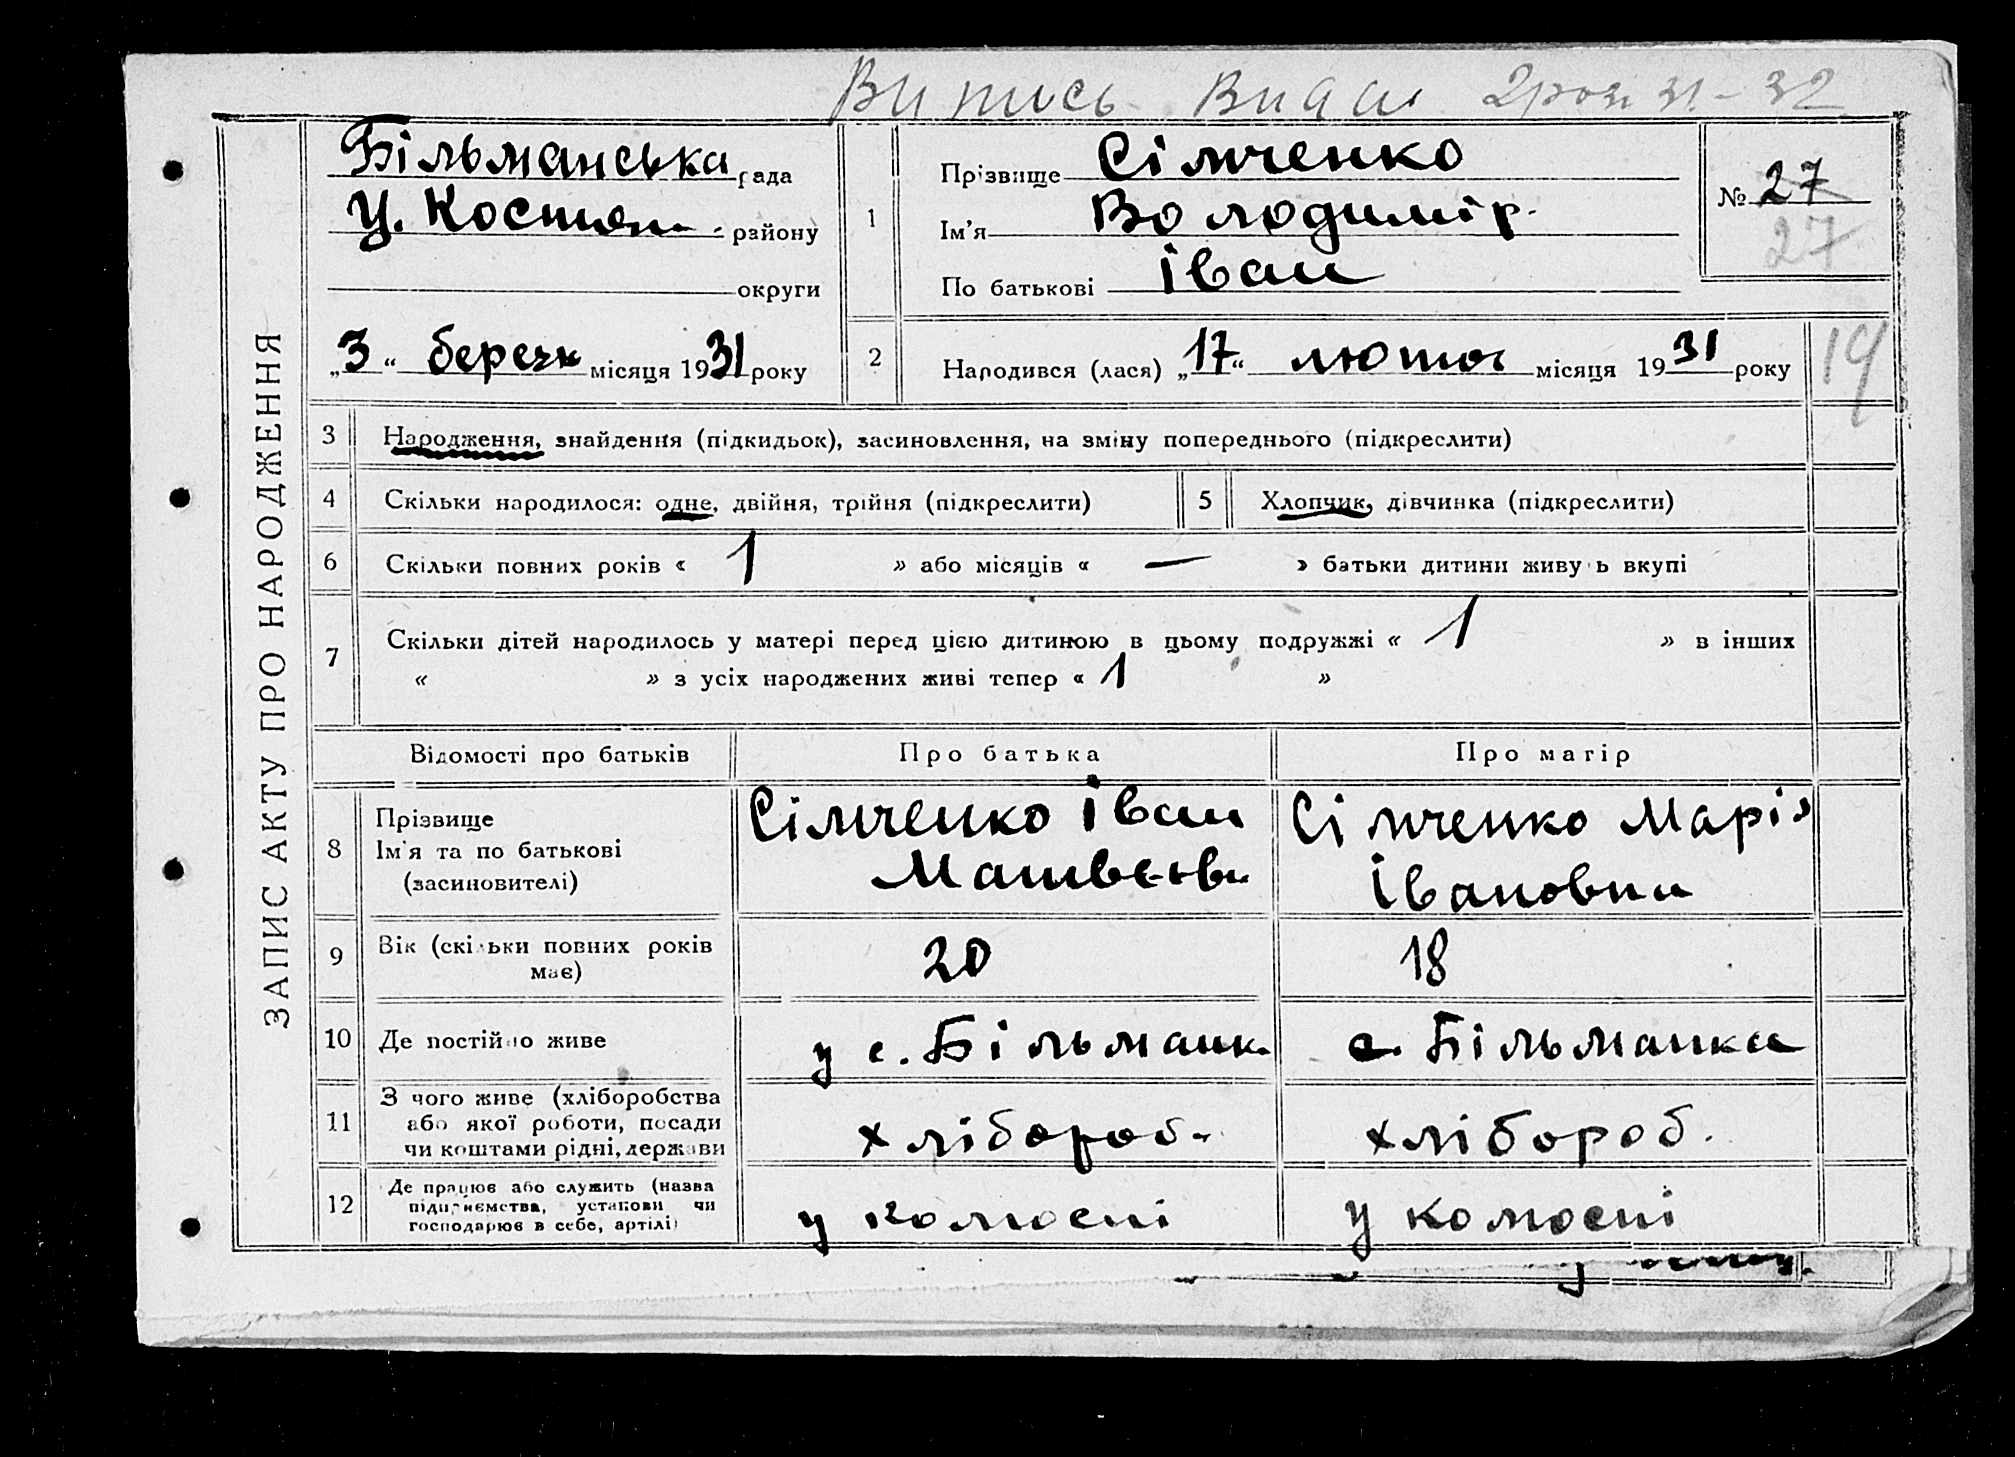 Випись Видан 31-32
ЗАПИС АКТУ ПРО НАРОДЖЕННЯ
Більманська рада
Ц. Костян. району
округи
„3“ березн місяця 1931 року
1
Прізвище Сімченко
Ім'я Володимір
По батькові Іван
№ 27
27
2
Народився (лася) „17“ лютог місяця 1931 року
19
3 Народження, знайдення (підкидьок), засиновлення, на зміну попереднього (підкреслити)
4 Скільки народилося: одне, двійня, трійня (підкреслити)
5 Хлопчик, дівчинка (підкреслити)
6 Скільки повних років « 1 » або місяців « — » батьки дитини живуть вкупі
7 Скільки дітей народилось у матері перед цією дитиною в цьому подружжі « 1 » в інших
« » з усіх народжених живі тепер « 1 »
Відомості про батьків Про батька Про матір
8
Прізвище
Ім'я та по батькові
(засиновителі)
Сімченко Іван
Матвєєв
Сімченко Марія
Івановна
9
Вік (скільки повних років
має)
20
18
10 Де постійно живе
у с. Більманк.
с. Більманка
11
З чого живе (хліборобства
або якої роботи, посади
чи коштами рідні, держави
хлібороб.
хлібороб.
12
Де працює або служить (назва
підприємства, установи чи
господарює в себе, артілі)
у комосні
у комосні